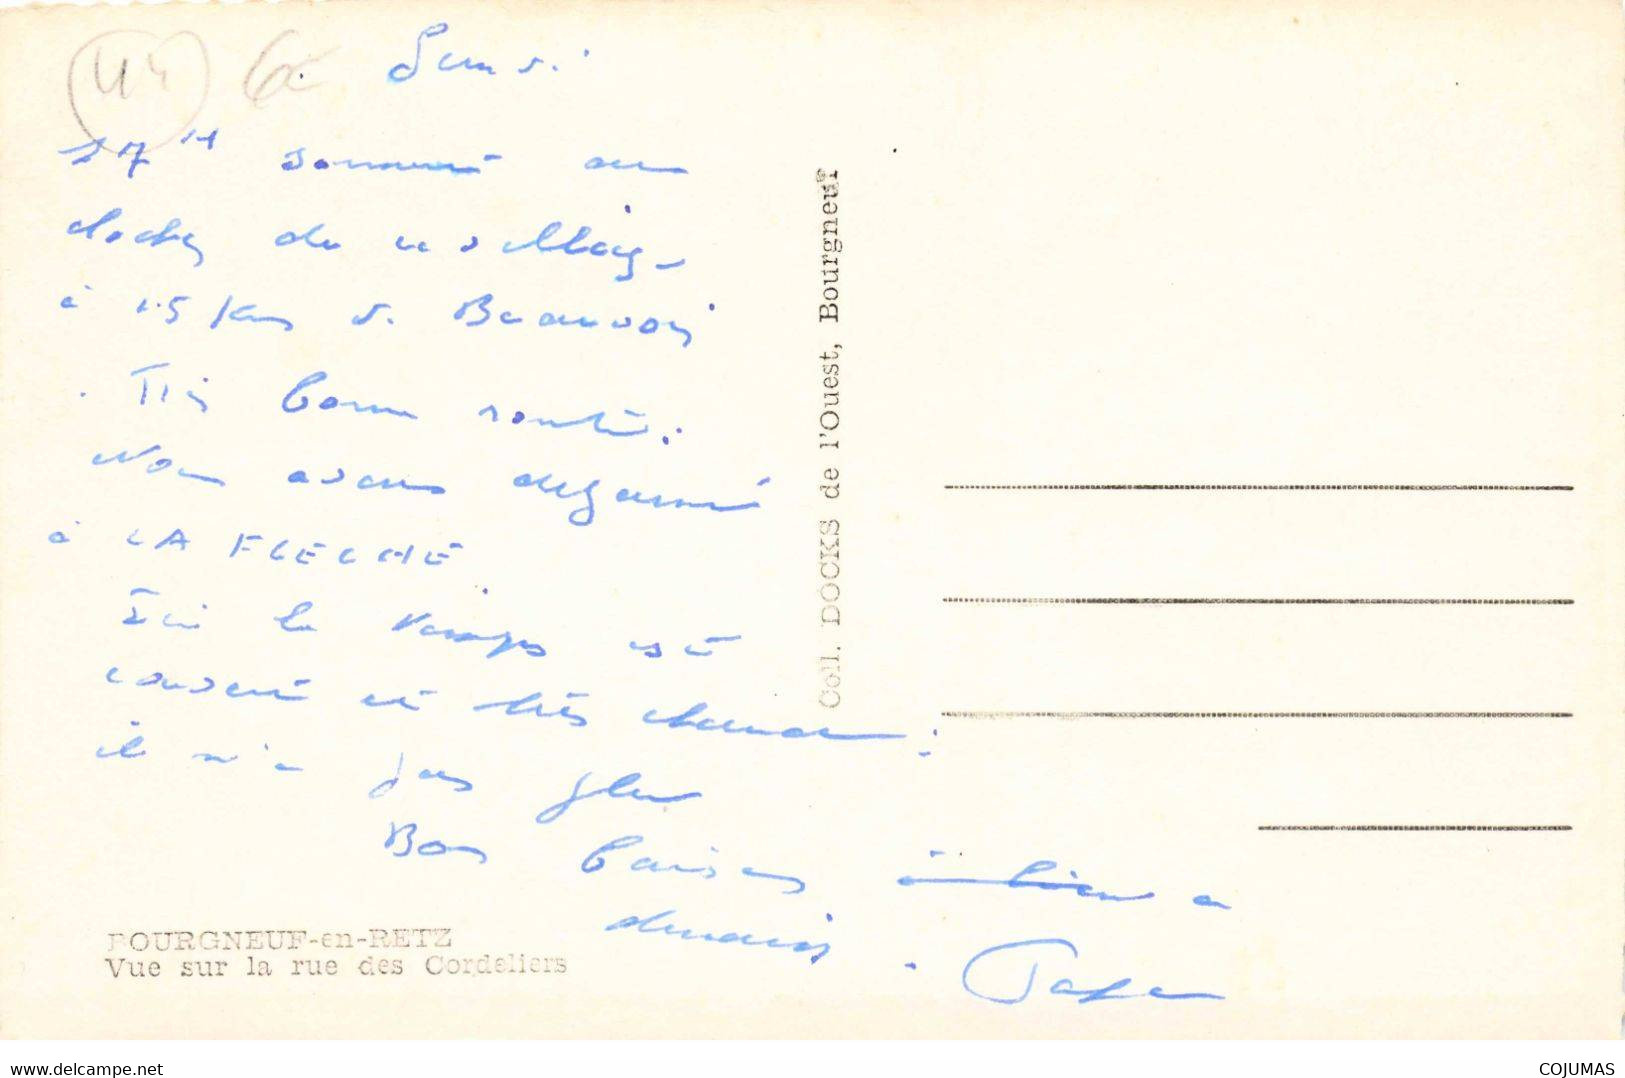 44 6€
Lundi
17H sonnent au
clocher de ce village
à 15 Kms de Beauvoir
. Très bonne route.
Nous avons déjeuné
à LA FLECHE
Ici le temps est
couvert et très chaud.
il n'a pas plu
Bons baisers à bien a
demain. Papa
Coll. DOCKS de l'Ouest, Bourgneuf
BOURGNEUF-en-RETZ
Vue sur la rue des Cordeliers
www.delcampe.net
COJUMAS